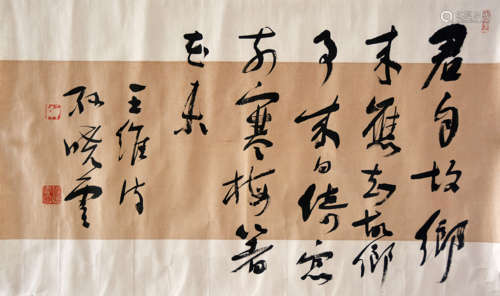 君自故鄉
来應知故鄉
事来日綺窗
前寒梅著
花未
王維诗
孙晓雲